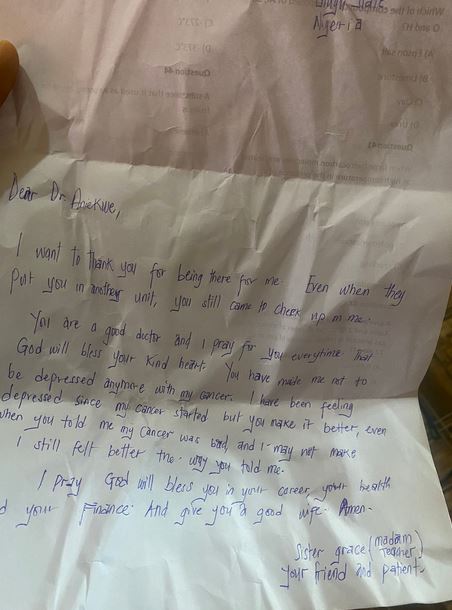 Nigeria
Dear Dr. Anekwe,
I want to thank you for being there for me. Even when they
Put you in another unit, you still came to check up on me.
You are a good doctor and I pray for you everytime that
God will bless your kind heart. You have made me not to
be depressed anymore with my cancer. I have been feeling
depressed since my cancer started but you make it better, even
when you told me my cancer was bad and I may not make
I still felt better the way you told me.
I pray God will bless you in your career, your health
d your Finance. And give you a good wife. Amen.
Sister grace (madam
Teacher)
Your friend and patient.
Which of the
O and H?
A) Epsom salt
B) Limestone
C) Clay
D) Urea
Question 41
C) -273°C
D) 373°C
Question 44